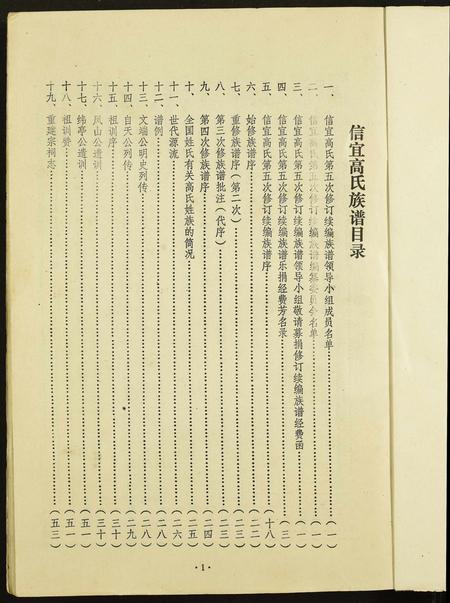 信宜高氏族谱目录
一、信宜高氏第五次修订续编族谱领导小组成员名单……(一)
二、信宜高氏第五次修订续编族谱编纂委员会名单……(一)
三、信宜高氏第五次修订续编族谱领导小组敬请募捐修订续编族谱经费函……(一)
四、信宜高氏第五次修订续编族谱乐捐经费芳名录……(三)
五、信宜高氏第五次修订续编族谱序……(十八)
六、始修族谱序……(二二)
七、重修族谱序(第二次)……(二三)
八、第三次修族谱批注(代序)……(二三)
九、第四次修族谱序……(二四)
十、全国姓氏有关高氏姓族的简况……(二五)
十一、世代源流……(二六)
十二、谱例……(二八)
十三、文端公明史列传……(二八)
十四、自天公列传……(二九)
十五、祖训序……(三十)
十六、凤山公遗训……(三十)
十七、纬亭公遗训……(五一)
十八、祖训赞……(五一)
十九、重建宗祠志……(五三)
·1·